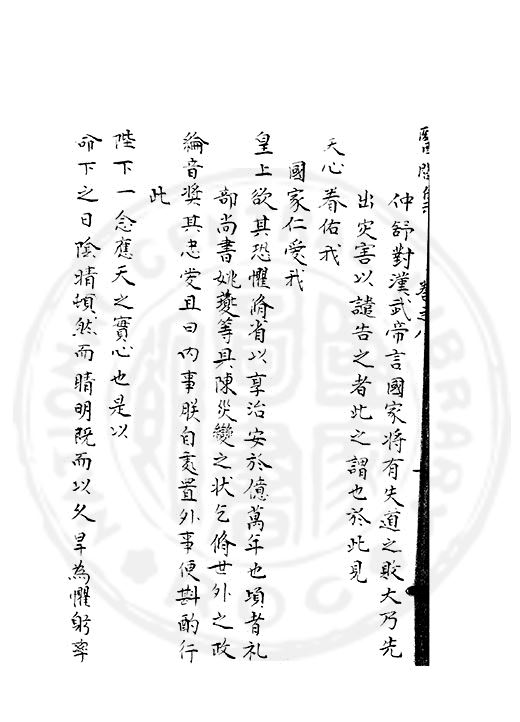 仲舒對漢武帝言國家将有失道之敗天乃先
出灾害以譴告之者此之謂也於此見
天心眷佑我
國家仁爱我
皇上欲其恐懼脩省以享治安於億萬年也頃者礼
部尚書姚夔等具陳災變之状乞脩丗外之政
綸音奬其忠爱且曰内事朕自處置外事便斟酌行
此
陛下一念應天之實心也是以
命下之日陰晴頓然而晴明既而以久旱為懼躬率